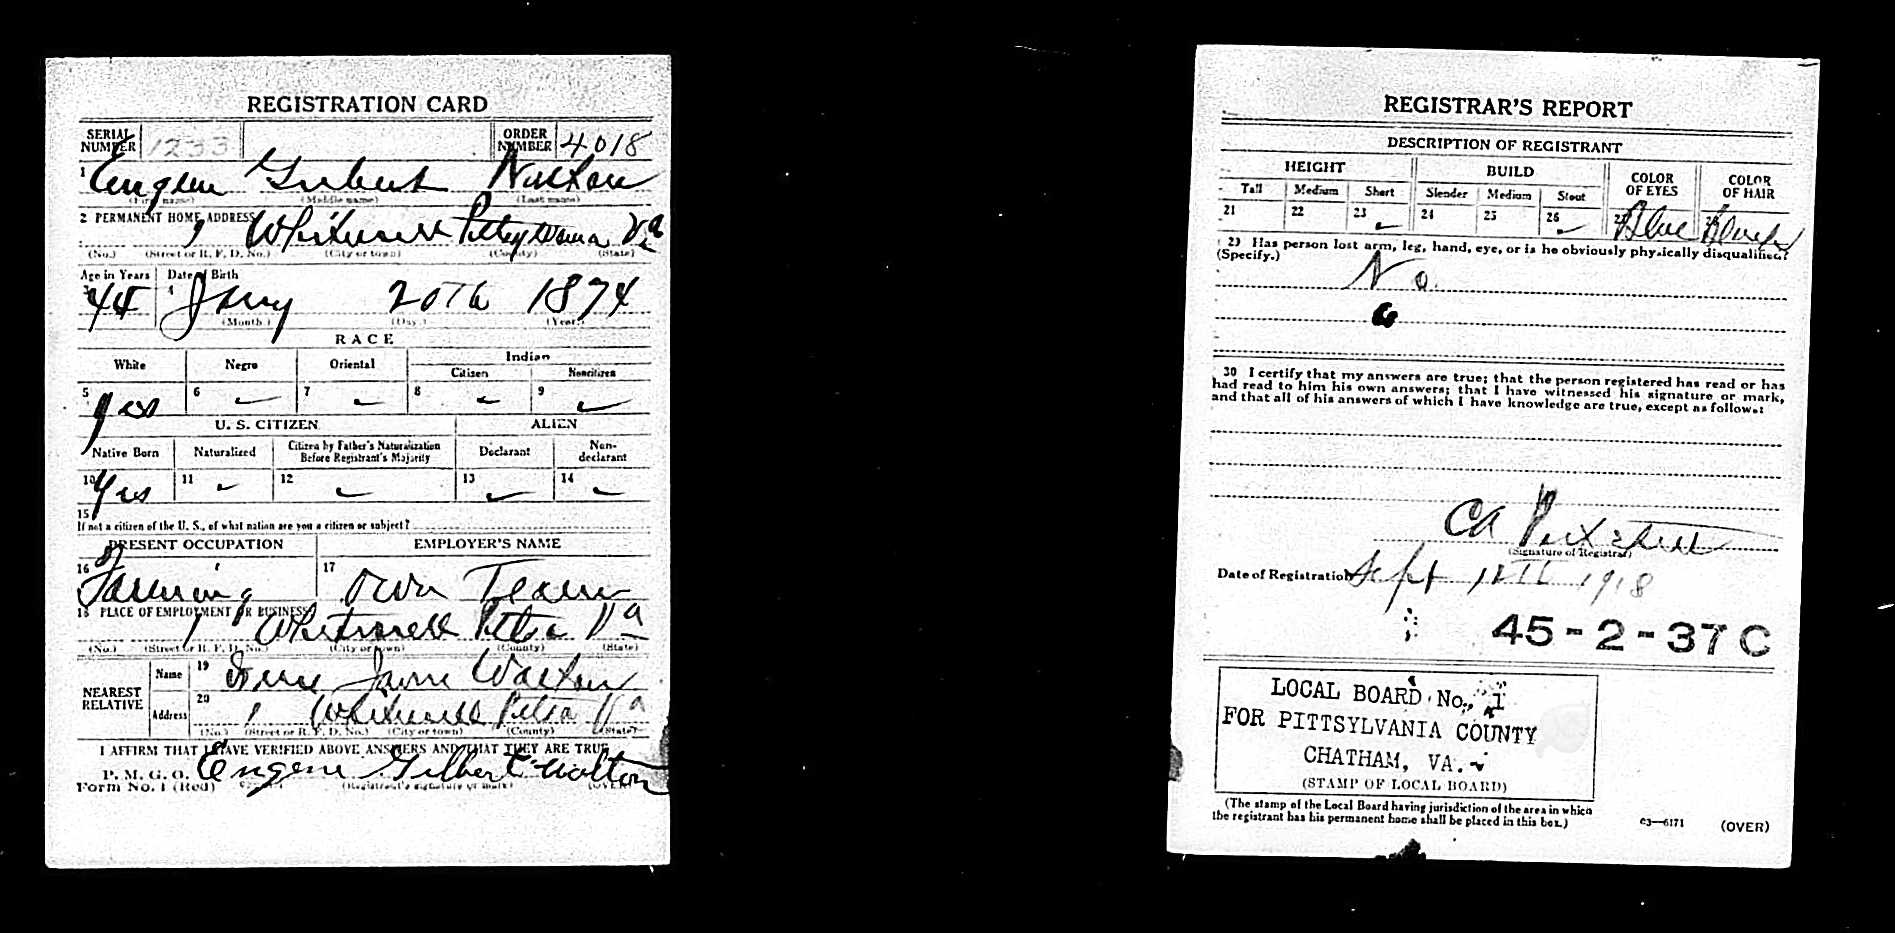 REGISTRATION CARD
SERIAL NUMBER 1233 ORDER NUMBER 4018
1 Eugene Gilbert Walton
(First name) (Middle name) (Last name)
2 PERMANENT HOME ADDRESS
1 Whitmell Pittsylvania Va
(No.) (Street or R. F. D. No.) (City or town) (County) (State)
Age in Years Date of Birth
3 44 4 Jany 20th 1874
(Month.) (Day.) (Year.)
RACE
White Negro Oriental Indian
Citizen Noncitizen
5 Yes 6 7 8 9
U. S. CITIZEN ALIEN
Native Born Naturalized Citizen by Father's Naturalization Before Registrant's Majority Declarant Non-declarant
10 Yes 11 12 13 14
15
If not a citizen of the U. S., of what nation are you a citizen or subject?
PRESENT OCCUPATION EMPLOYER'S NAME
16 Farming 17 Own Team
18 PLACE OF EMPLOYMENT OR BUSINESS
1 Whitmell Pittsa Va
(No.) (Street or R. F. D. No.) (City or town) (County) (State)
NEAREST RELATIVE
Name 19 Walton
Address 20 1 Whitmell Pittsa Va
(No.) (Street or R. F. D. No.) (City or town) (County) (State)
I AFFIRM THAT I HAVE VERIFIED ABOVE ANSWERS AND THAT THEY ARE TRUE
P. M. G. O.
Form No. 1 (Red) Eugene Gilbert Walton
(Registrant's signature or mark) (OVER)
REGISTRAR'S REPORT
DESCRIPTION OF REGISTRANT
HEIGHT BUILD COLOR OF EYES COLOR OF HAIR
Tall Medium Short Slender Medium Stout
21 22 23 24 25 26 27 Blue 28 Black
29 Has person lost arm, leg, hand, eye, or is he obviously physically disqualified?
(Specify.)
No
30 I certify that my answers are true; that the person registered has read or has
had read to him his own answers; that I have witnessed his signature or mark,
and that all of his answers of which I have knowledge are true, except as follows:
CA
(Signature of Registrar)
Date of Registration Sept 12th 1918
45-2-37 C
LOCAL BOARD No. 1
FOR PITTSYLVANIA COUNTY
CHATHAM, VA.
(STAMP OF LOCAL BOARD)
(The stamp of the Local Board having jurisdiction of the area in which
the registrant has his permanent home shall be placed in this box.)
03—6171 (OVER)